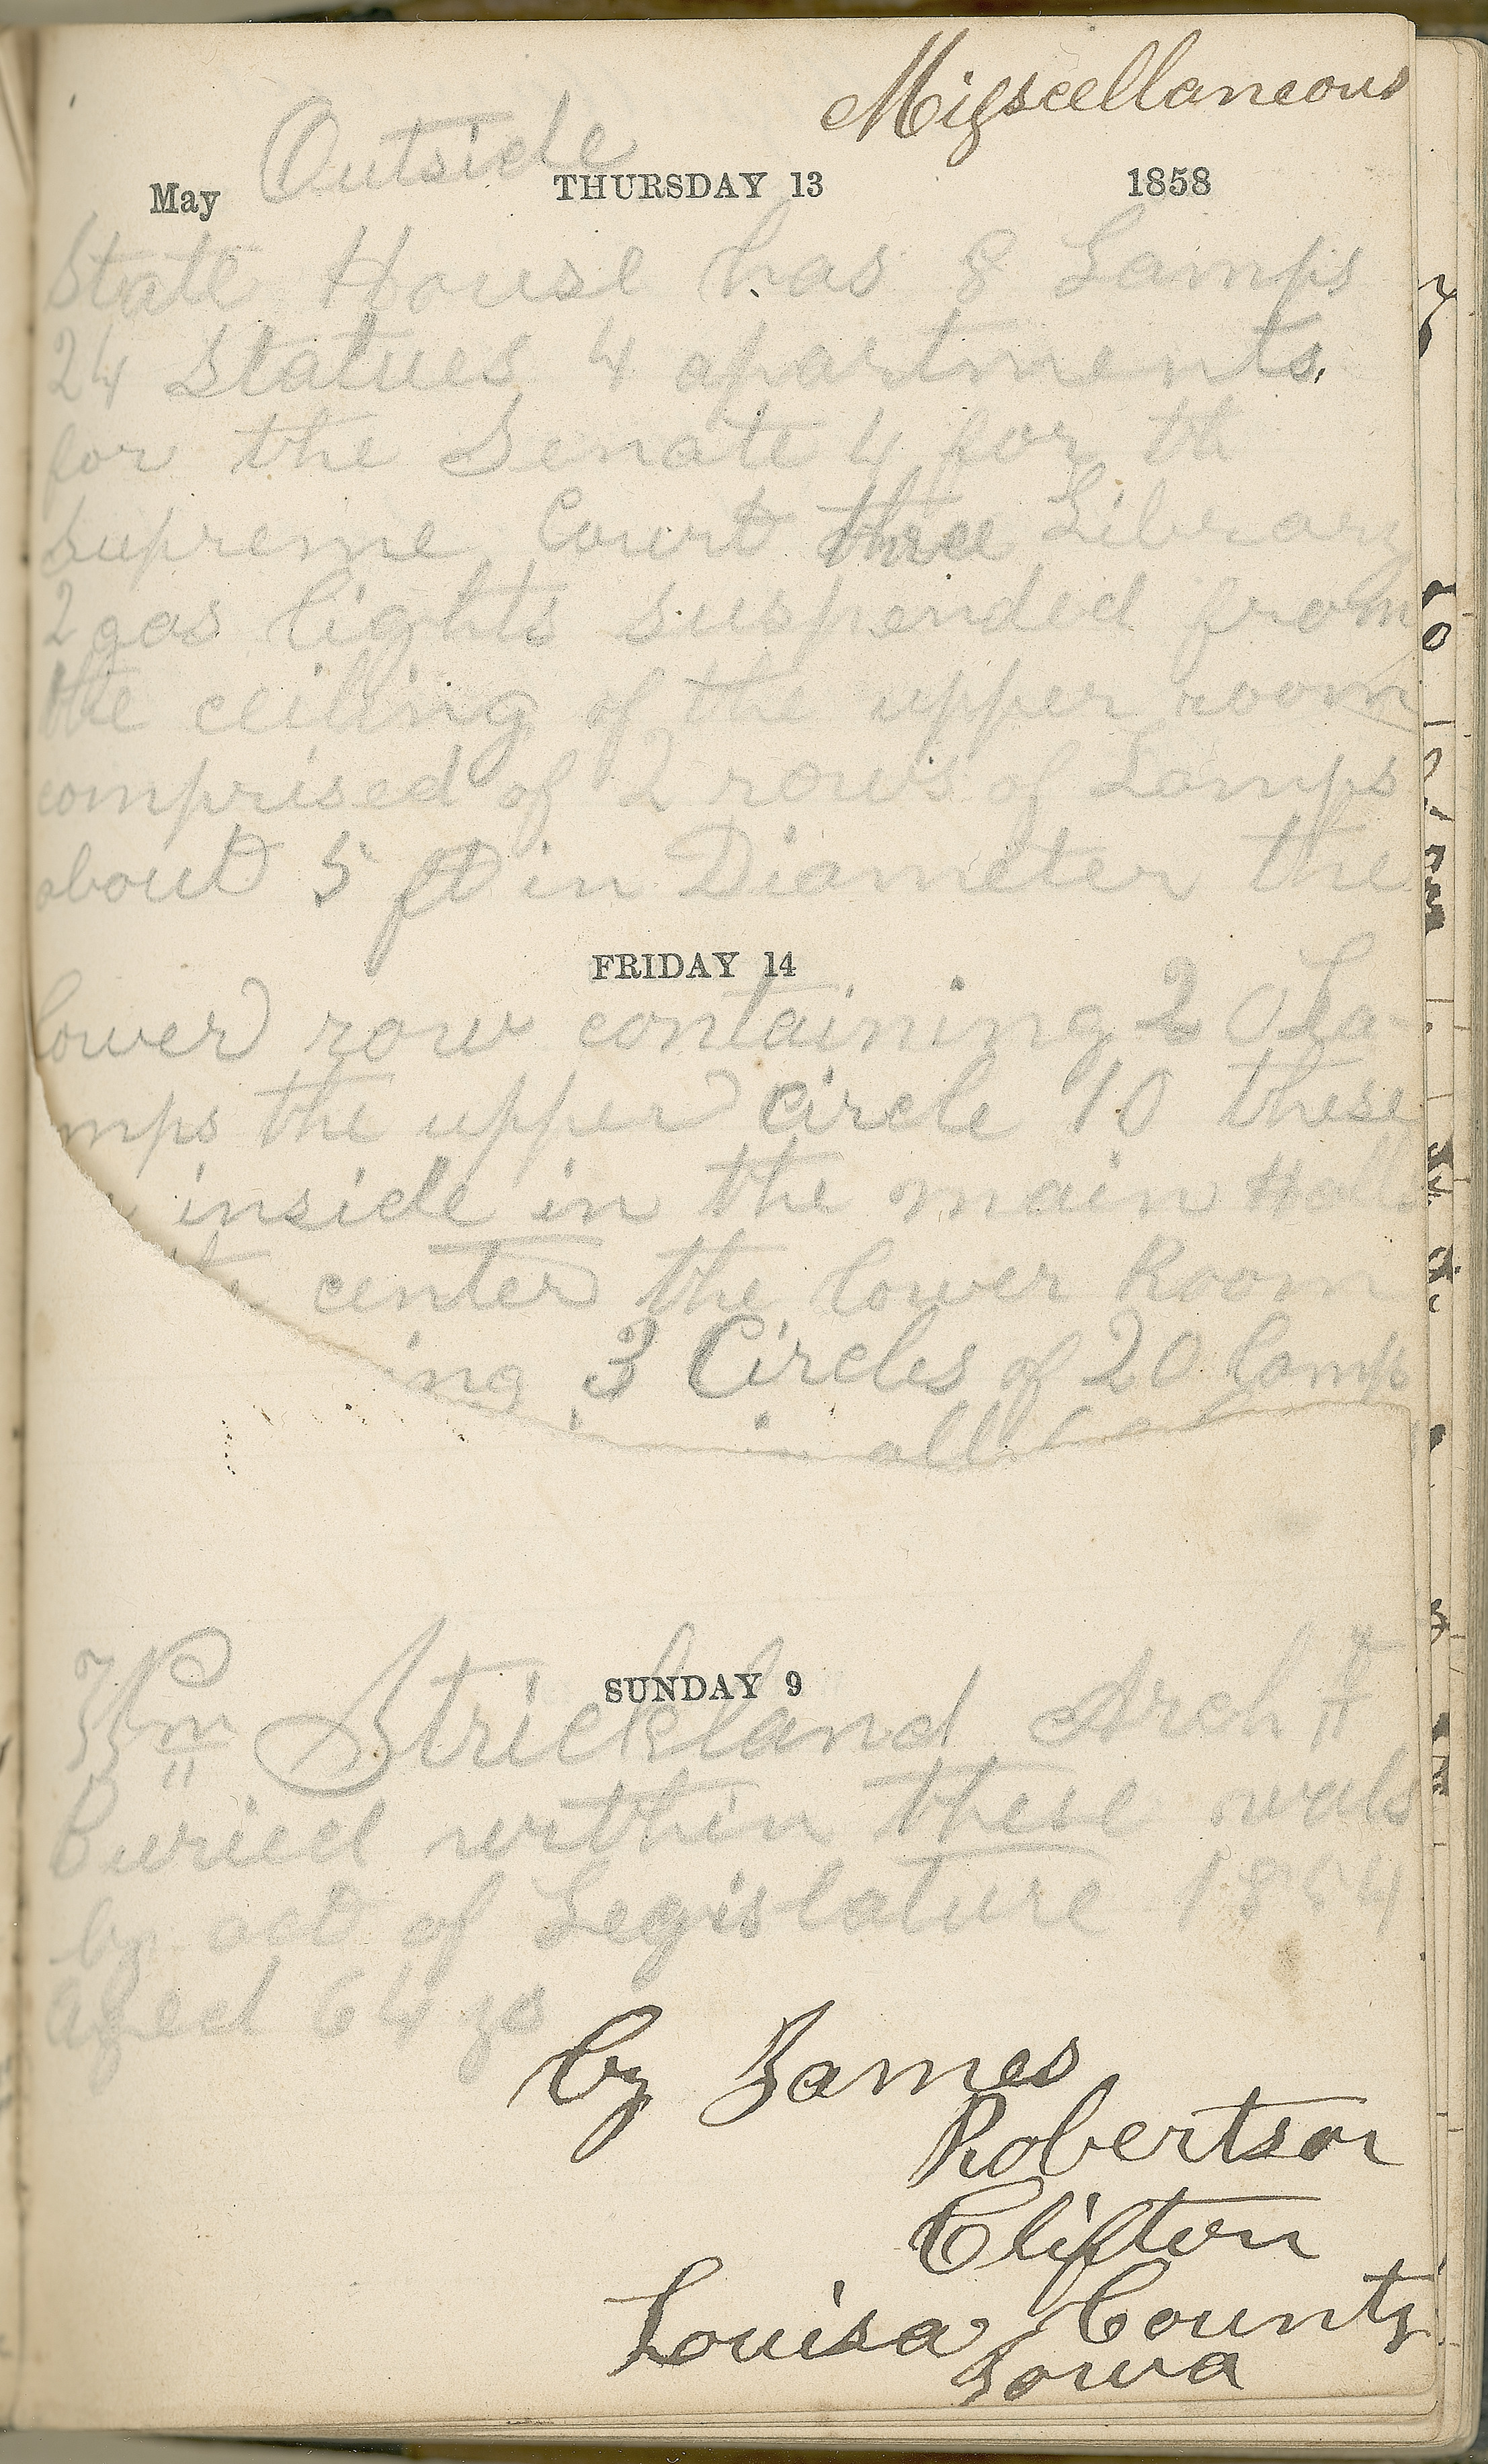 Migscellaneous
Outside
May THURSDAY 13 1858
State House has 8 Lamps
24 Statues 4 apartments.
for the Senate 4 for th
Supreme Court three Library
2 gas lights suspended from
the ceiling of the upper room
comprised of 2 rows of Lamps
about 5 ft in Diameter the
FRIDAY 14
lower row containing 20 La-
mps the upper circle 10 these
inside in the main Hall
center the lower Room
ing 3 Circles of 20 lamps
all
SUNDAY 9
Wm Strickland Archtt
Buried within these wals
by act of Legislature 1854
aged 64 ys
by James
Robertson
Clifton
Louisa County
Iowa